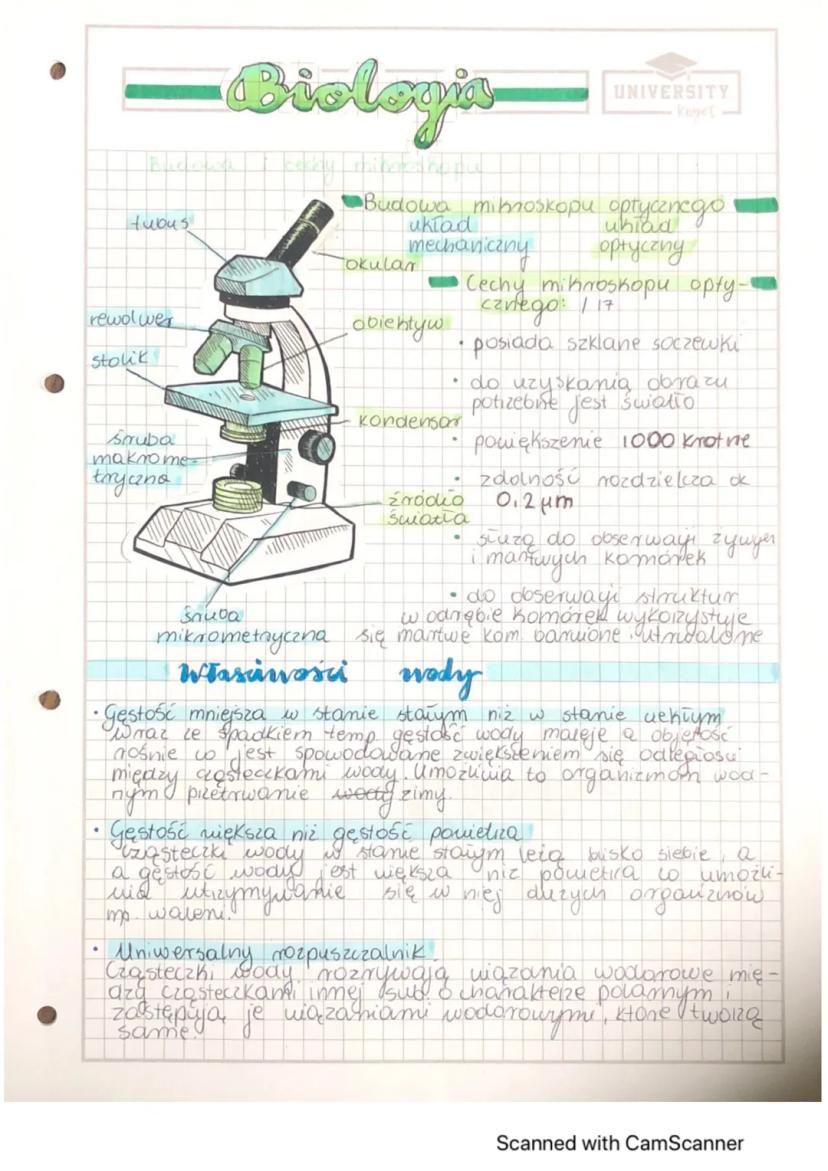 Biologia
UNIVERSITY
Budowa i cechy mikroskopu
Budowa mikroskopu optycznego
układ
mechaniczny
układ
optyczny
tubus
okular
rewolwer
obiektyw
stolik
kondensor
śruba
makrome-
tryczna
źródło
światła
śruba
mikrometryczna
Cechy mikroskopu opty-
cznego: / 17
• posiada szklane soczewki
• do uzyskania obrazu
potrzebne jest światło
• powiększenie 1000 krotne
• zdolność rozdzielcza ok
0,2 µm
• służą do obserwacji żywych
i martwych komórek
• do obserwacji struktur
w odrębie komórek wykorzystuje
się martwe kom. barwione i utrwalone
Właściwości wody
• Gęstość mniejsza w stanie stałym niż w stanie ciekłym
wraz ze spadkiem temp gęstość wody maleje a objętość
rośnie co jest spowodowane zwiększeniem się odległości
między cząsteczkami wody. Umożliwia to organizmom wod-
nym przetrwanie wody zimy.
• Gęstość większa niż gęstość powietrza
Cząsteczki wody w stanie stałym leżą blisko siebie, a
a gęstość wody jest większa niż powietrza co umożli-
wia utrzymywanie się w niej dużych organizmów
np. waleni.
• Uniwersalny rozpuszczalnik
Cząsteczki wody rozrywają wiązania wodorowe mię-
dzy cząsteczkami innej sub. o charakterze polarnym i
zastępują je wiązaniami wodorowymi, które tworzą
same.
Scanned with CamScanner